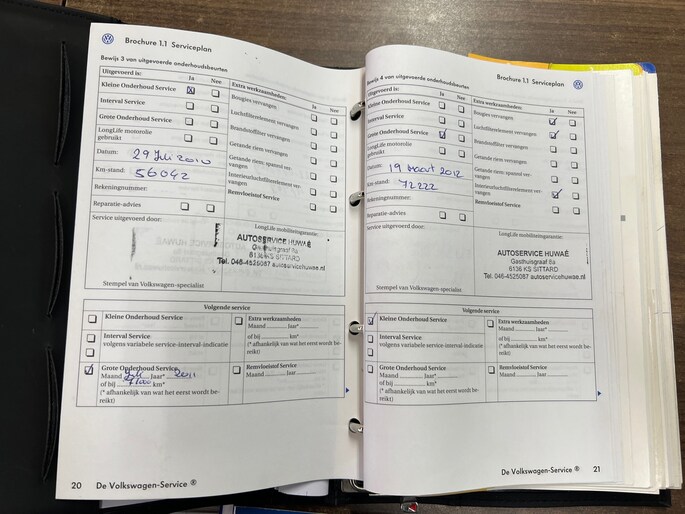 Brochure 1.1 Serviceplan
Bewijs 3 van uitgevoerde onderhoudsbeurten
Uitgevoerd is: Ja Nee
Kleine Onderhoud Service
Interval Service
Grote Onderhoud Service
LongLife motorolie
gebruikt
Datum: 29 Juli 2010
Km-stand: 56042
Rekeningnummer:
Reparatie-advies
Service uitgevoerd door:
Extra werkzaamheden: Ja Nee
Bougies vervangen
Luchtfilterelement vervangen
Brandstoffilter vervangen
Getande riem vervangen
Getande riem; spanrol ver-
vangen
Interieurluchtfilterelement ver-
vangen
Remvloeistof Service
LongLife mobiliteitsgarantie:
AUTOSERVICE HUWAË
Gasthuisgraaf 8a
6136 KS SITTARD
Tel. 046-4525087 autoservicehuwae.nl
Stempel van Volkswagen-specialist
Volgende service
Kleine Onderhoud Service
Interval Service
volgens variabele service-interval-indicatie
Grote Onderhoud Service
Maand Juli Jaar* 2011
of bij 71000 km*
(* afhankelijk van wat het eerst wordt be-
reikt)
Extra werkzaamheden
Maand Jaar*
of bij km*
(* afhankelijk van wat het eerst wordt be-
reikt)
Remvloeistof Service
Maand Jaar
20 De Volkswagen-Service ®
Brochure 1.1 Serviceplan
Bewijs 4 van uitgevoerde onderhoudsbeurten
Uitgevoerd is: Ja Nee
Kleine Onderhoud Service
Interval Service
Grote Onderhoud Service
LongLife motorolie
gebruikt
Datum: 19 maart 2012
Km-stand: 72222
Rekeningnummer:
Reparatie-advies
Service uitgevoerd door:
Extra werkzaamheden: Ja Nee
Bougies vervangen
Luchtfilterelement vervangen
Brandstoffilter vervangen
Getande riem vervangen
Getande riem; spanrol ver-
vangen
Interieurluchtfilterelement ver-
vangen
Remvloeistof Service
LongLife mobiliteitsgarantie:
AUTOSERVICE HUWAË
Gasthuisgraaf 8a
6136 KS SITTARD
Tel. 046-4525087 autoservicehuwae.nl
Stempel van Volkswagen-specialist
Volgende service
Kleine Onderhoud Service
Interval Service
volgens variabele service-interval-indicatie
Grote Onderhoud Service
Maand Jaar*
of bij km*
(* afhankelijk van wat het eerst wordt be-
reikt)
Extra werkzaamheden
Maand Jaar*
of bij km*
(* afhankelijk van wat het eerst wordt be-
reikt)
Remvloeistof Service
Maand Jaar
De Volkswagen-Service ® 21